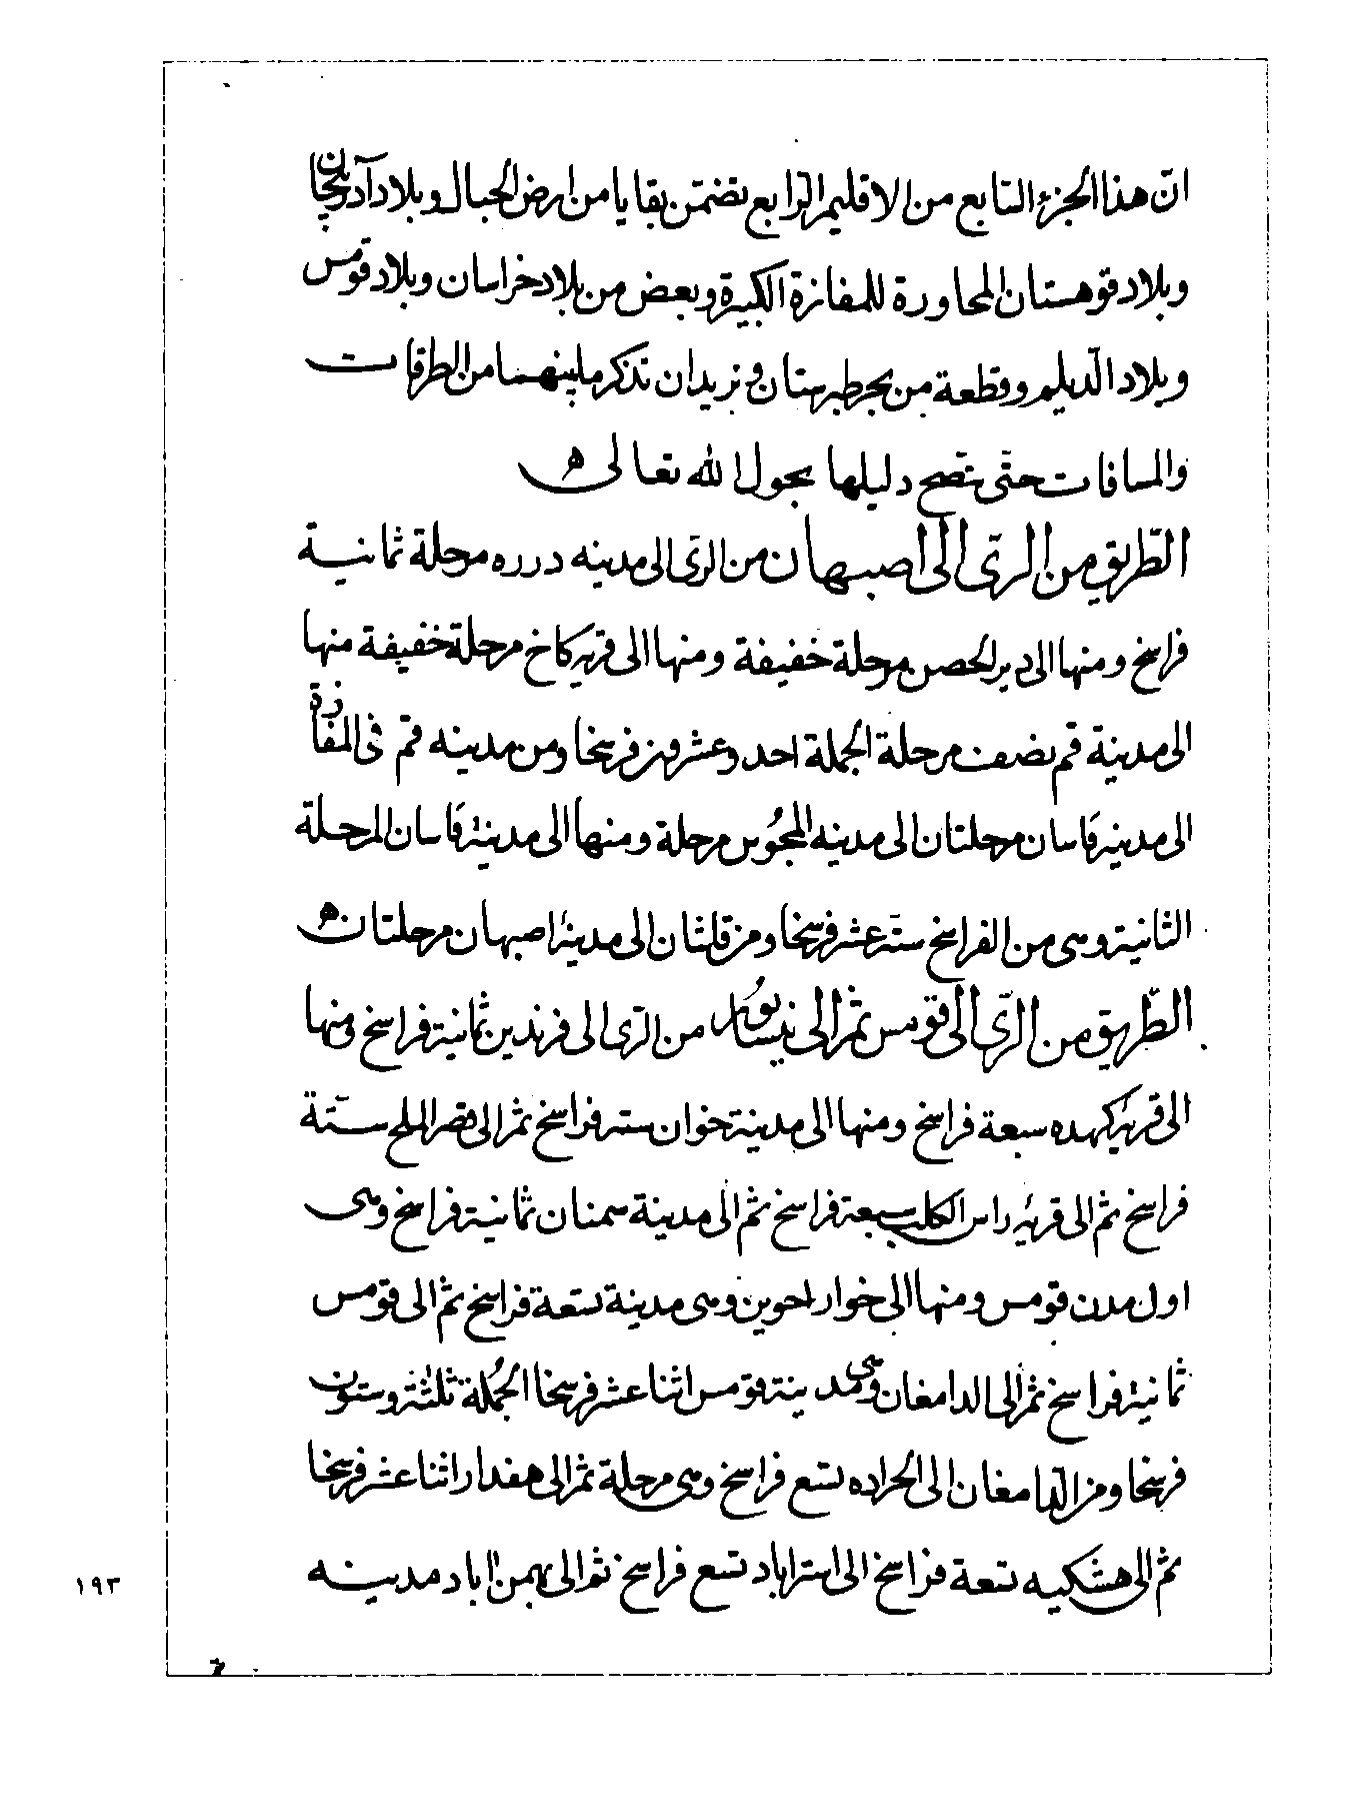 انّ هذا الجزء السّابع من الاقليم الرّابع تضمّن بقايا من ارض الجبال وبلاد آذربيجان
وبلاد قوهستان المجاورة للمفازة الكبيرة وبعض من بلاد خراسان وبلاد قومس
وبلاد الدّيلم وقطعة من بحر طبرستان ونريد ان نذكر ما بينهما من الطرقات
والمسافات حتّى يتّضح دليلها بحول الله تعالى ه
الطّريق من الرّى الى اصبهان من الرّى الى مدينه درره مرحلة ثمانية
فراسخ ومنها الى دير الحصن مرحلة خفيفة ومنها الى قريه كاخ مرحلة خفيفة منها
الى مدينة قم نصف مرحلة الجملة احد وعشرون فرسخا ومن مدينه قمّ فى المفازة
الى مدينه قاسان مرحلتان الى مدينه المجُوس مرحلة ومنها الى مدينة قاسان المرحلة
الثانية وهى من الفراسخ ستّة عشر فرسخا ومن قاشان الى مدينة اصبهان مرحلتان ه
الطّريق من الرّى الى قومس ثمّ الى نيسابور من الرّى الى فرندين ثمانية فراسخ ومنها
الى قرية كهده سبعة فراسخ ومنها الى مدينة خوان سته فراسخ ثمّ الى قصر الملح ستّة
فراسخ ثم الى قريه راس الكلب سبعة فراسخ ثمّ الى مدينة سمنان ثمانية فراسخ وهى
اول مدن قومس ومنها الى خوار احوين وهى مدينة تسعة فراسخ ثمّ الى قومس
ثمانية فراسخ ثمّ الى الدامغان وهى مدينة قومس اثنا عشر فرسخا الجُملة ثلثة وستّون
فرسخا ومن الدّامغان الى الحراده تسع فراسخ وهى مرحلة ثمّ الى هفدار اثنا عشر فرسخا
ثم الى هشكيه تسعة فراسخ الى استراباد تسع فراسخ ثم الى بهمن اباد مدينه
١٩٣